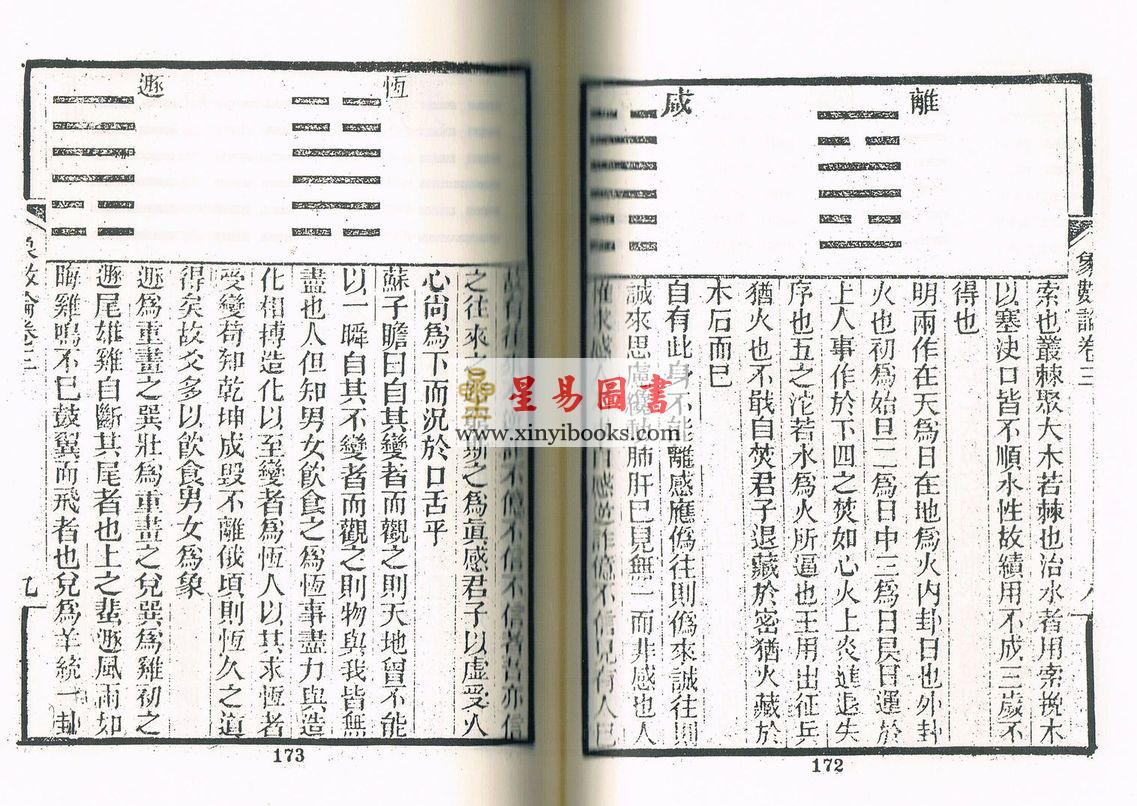 象數論卷三
八
離
咸
索也叢棘聚大木若棘也治水者用索挽木
以塞決口皆不順水性故績用不成三歲不
得也
明兩作在天為日在地為火內卦日也外卦
火也初為始旦二為日中三為日昃日運於
上人事作於下四之焚如心火上炎進退失
序也五之沱若水為火所逼也王用出征兵
猶火也不戢自焚君子退藏於密猶火藏於
木石而已
自有此身不能離感應偽往則偽來誠往則
誠來思慮纏 肺肝已見無一而非感也人
惟求感人 自感逆詐億不信見有人已
173
172
恆
遯
故有往來 不億不信不信者吾亦信
之往來之 之為眞感君子以虛受人
心尙為下而況於口舌乎
蘇子瞻曰自其變者而觀之則天地曾不能
以一瞬自其不變者而觀之則物與我皆無
盡也人但知男女飲食之為恆事盡力與造
化相搏造化以至變者為恆人以其求恆者
受變苟知乾坤成毀不離俄頃則恆久之道
得矣故爻多以飲食男女為象
遯為重畫之巽壯為重畫之兌巽為雞初之
遯尾雄雞自斷其尾者也上之蜚遯風雨如
晦雞鳴不已鼓翼而飛者也兌為羊統一卦
象數論卷三
九
星易圖書
www.xinyibooks.com